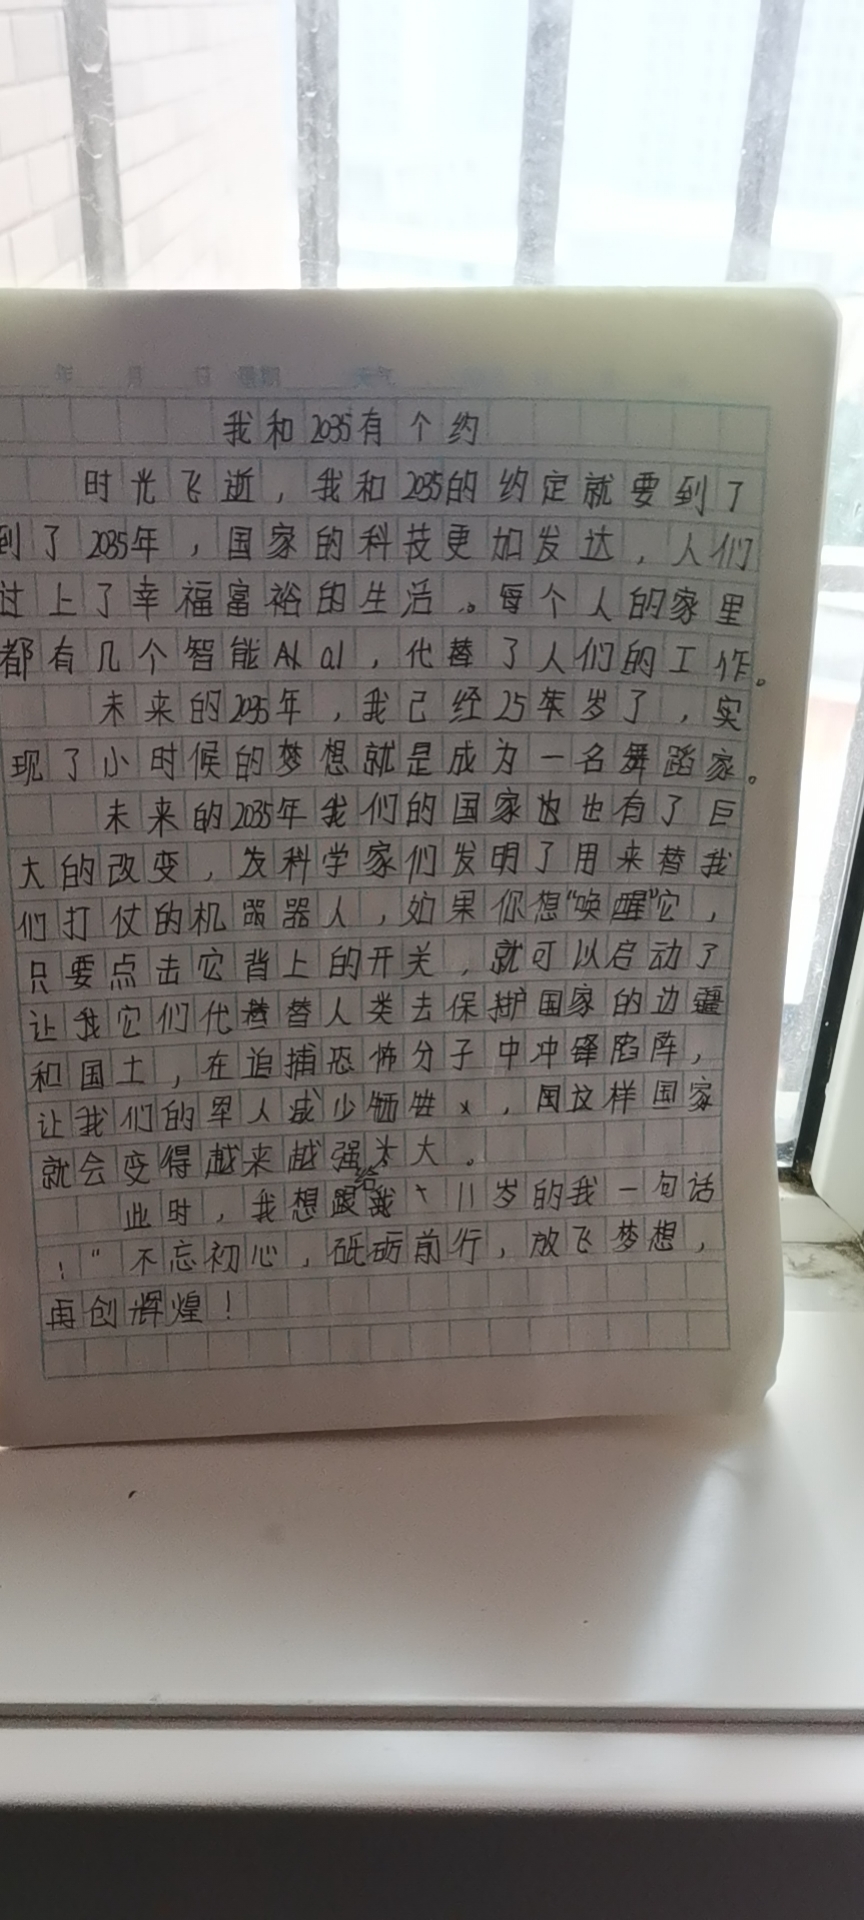 我和2035有个约
时光飞逝，我和2035的约定就要到了
到了2035年，国家的科技更加发达，人们
过上了幸福富裕的生活。每个人的家里
都有几个智能AI，代替了人们的工作。
未来的2035年，我已经25岁了，实
现了小时候的梦想就是成为一名舞蹈家。
未来的2035年我们的国家也有了巨
大的改变，科学家们发明了用来替我
们打仗的机器人，如果你想“唤醒”它，
只要点击它背上的开关，就可以启动了
让它们代替人类去保护国家的边疆
和国土，在追捕恐怖分子中冲锋陷阵，
让我们的军人减少牺牲，这样国家
就会变得越来越强大。
此时，我想给11岁的我一句话
：“不忘初心，砥砺前行，放飞梦想，
再创辉煌！